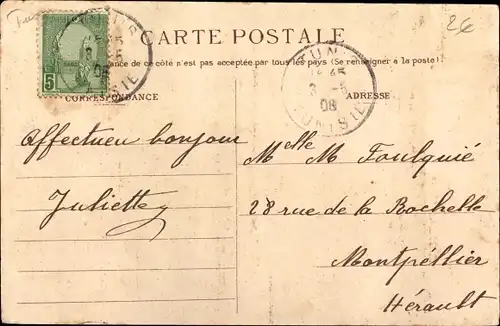 26
CARTE POSTALE
de ce côté n'est pas acceptée par tous les pays (Se renseigner à la poste)
CORRESPONDANCE
ADRESSE
5
TUNIS
3 -5
08
TUNISIE
Affectueux bonjour
Juliette
Melle M Foulquié
28 rue de la Rochelle
Montpéllier
Hérault